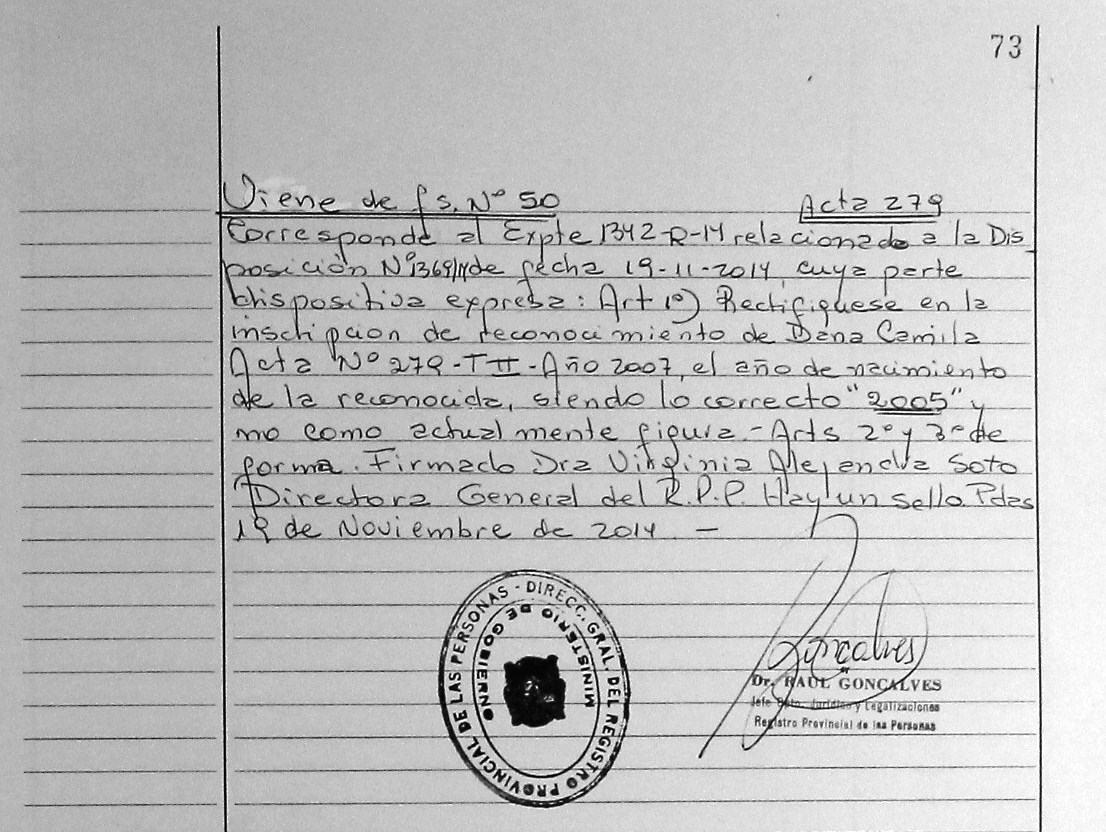 73
Viene de fs. Nº 50 Acta 279
Corresponde al Expte 1342-R-14 relacionado a la Dis
posición Nº1369/14de fecha 19-11-2014, cuya parte
dispositiva expresa: Art 1º) Rectifiquese en la
inscripcion de reconocimiento de Dana Camila
Acta Nº 279-TII-Año 2007, el año de nacimiento
de la reconocida, siendo lo correcto "2005" y
no como actualmente figura.- Arts 2º y 3º de
forma. Firmado Dra Virginia Alejandra Soto
Directora General del R.P.P. Hay un sello. Pdas
19 de Noviembre de 2014. -
DIRECC. GRAL. DEL REGISTRO PROVINCIAL DE LAS PERSONAS -
MINISTERIO DE GOBIERNO
Goncalves
Dr. RAUL GONCALVES
Jefe Dpto. Jurídico y Legalizaciones
Registro Provincial de las Personas